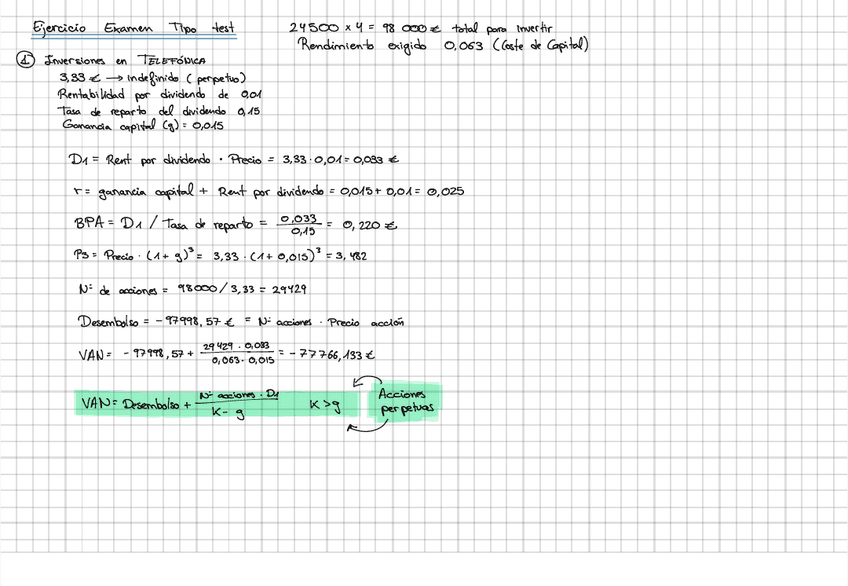 Ejercicio Examen Tipo test
24500 x 4 = 98 000 € total para invertir
Rendimiento exigido 0,063 (Coste de Capital)
1º Inversiones en TELEFÓNICA
3,33 € → indefinido (perpetuo)
Rentabilidad por dividendo de 0,01
Tasa de reparto del dividendo 0,15
Ganancia capital (g) = 0,015
D1 = Rent por dividendo · Precio = 3,33 · 0,01 = 0,033 €
r = ganancia capital + Rent por dividendo = 0,015 + 0,01 = 0,025
BPA = D1 / Tasa de reparto = 0,033 / 0,15 = 0,220 €
P3 = Precio · (1 + g)³ = 3,33 · (1 + 0,015)³ = 3,482
Nº de acciones = 98000 / 3,33 = 29429
Desembolso = -97998,57 € = Nº acciones · Precio acción
VAN = -97998,57 + 29429 · 0,033 / 0,063 · 0,015 = -77766,133 €
VAN = Desembolso + Nº acciones · D1 / K - g K > g
Acciones
perpetuas